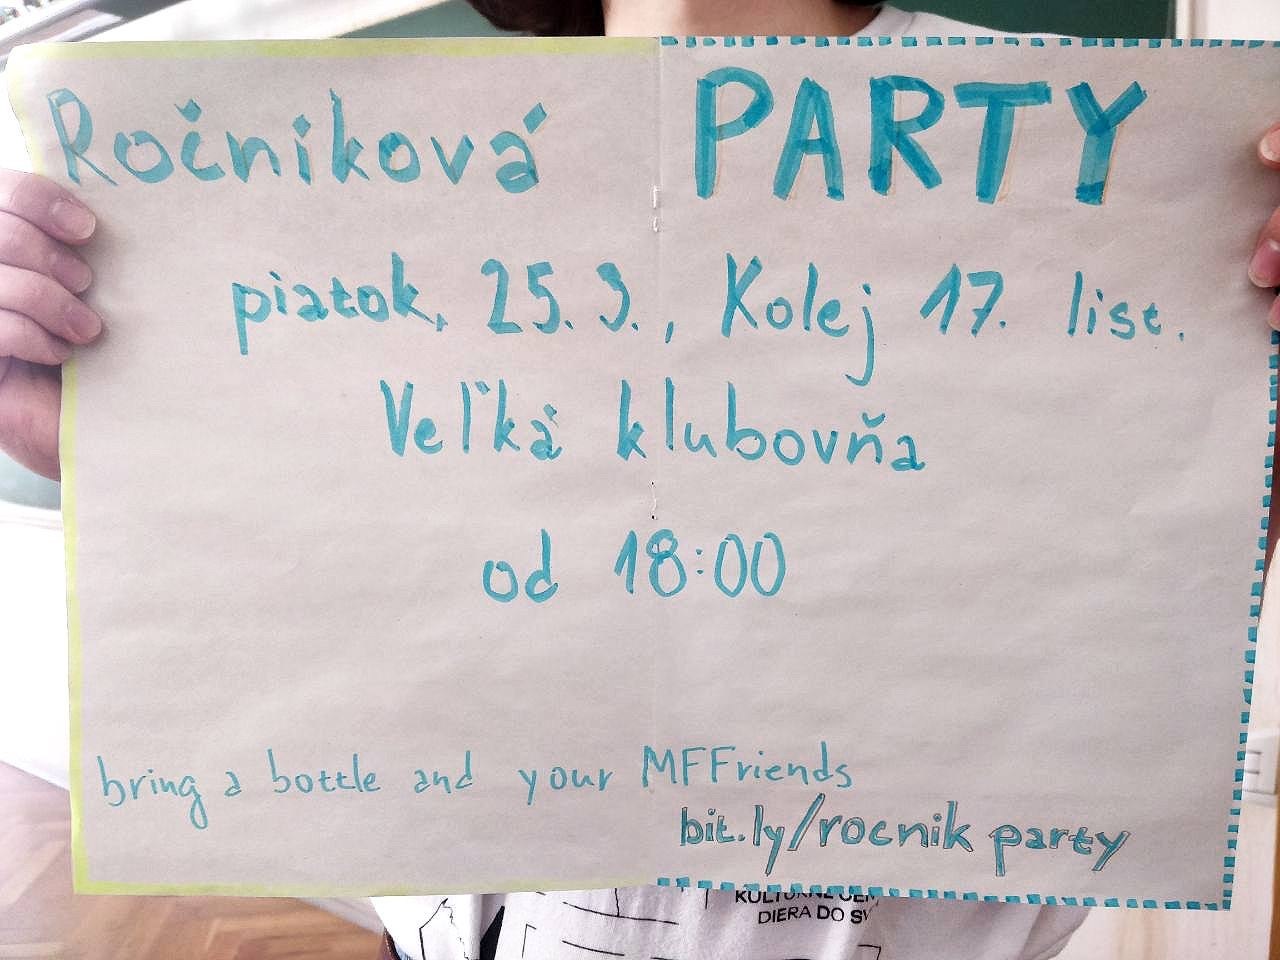 Ročníková PARTY
piatok, 25. 3., Kolej 17. list.
Veľká klubovňa
od 18:00
bring a bottle and your MFFriends
bit.ly/rocnik party
DIERA DO